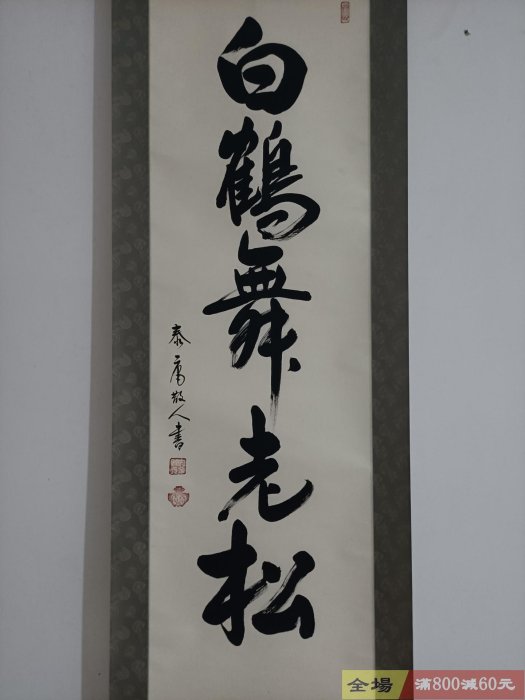 白鶴舞老松
泰庸散人書
全場
滿800減60元